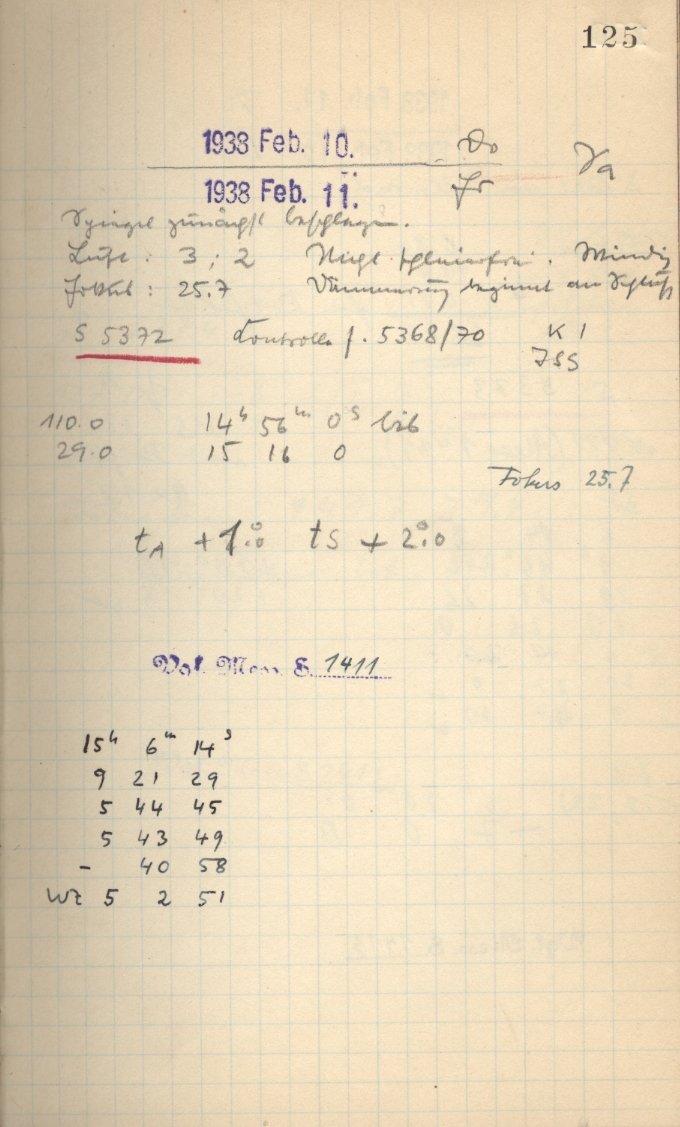 125
1938 Feb. 10. Do
1938 Feb. 11. Fr
Spiegel zunächst beschlagen.
Luft: 3; 2 Nicht schleierfrei. Windig
Fokus: 25.7 Dämmerung beginnt am Schluß
S 5372 Kontrolle f. 5368/70 K 1
110.0 14h 56m 0s bis
29.0 15 16 0
Fokus 25.7
tA +1°.0 tS + 2°.0
S. 1411
15h 6m 14s
9 21 29
5 44 45
5 43 49
- 40 58
WZ 5 2 51